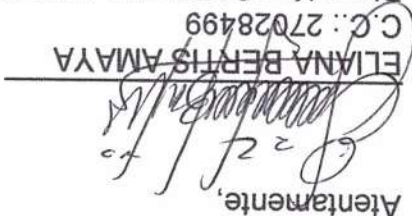 Atentamente,
ELIANA BERTIS AMAYA
C.C.: 27028499